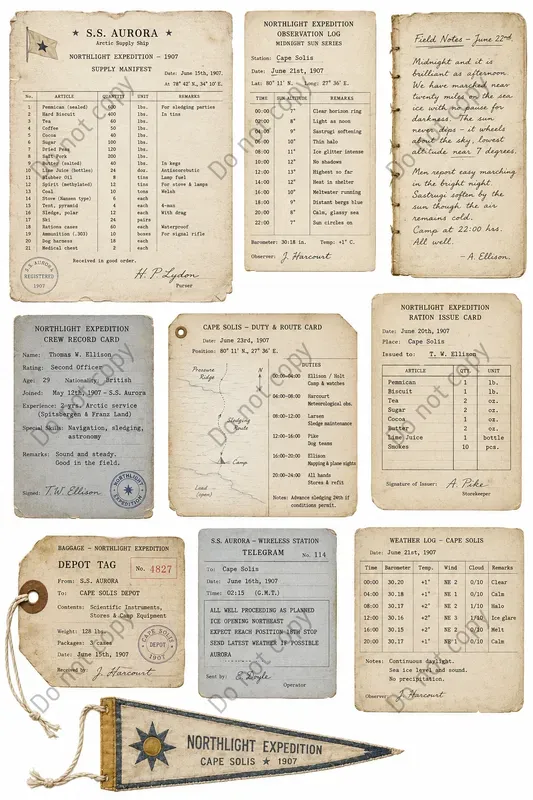 ★ S.S. AURORA ★
Arctic Supply Ship
NORTHLIGHT EXPEDITION - 1907
SUPPLY MANIFEST
Date: June 15th, 1907.
At 78° 42' N, 34° 10' E.
No. ARTICLE QUANTITY UNIT REMARKS
1 Pemmican (sealed) lbs. For sledging parties
2 Hard Biscuit 400 lbs. In tins
3 Tea 60 lbs.
4 Coffee 50 lbs.
5 Cocoa 40 lbs.
6 Sugar 100 lbs.
7 Dried Peas 120 lbs.
8 Salt Pork 200 lbs.
(salted) 40 lbs. In kegs
Lime Juice (bottles) 24 dos. Antiscorbutic
Blubber Oil 8 tins Lamp fuel
12 Spirit (methylated) 12 tins For stove & lamps
13 Coal 10 tons Welsh
14 Stove (Nansen type) 6 each
15 Tent, pyramid 4 each 4-man
16 Sledge, polar 12 each With drag
17 Ski 24 pairs
18 Rations cases 60 each Waterproof
19 Ammunition (.303) 10 boxes For signal rifle
20 Dog harness 18 each
21 Medical chest 2 each
Received in good order.
H. P. Lydon
Purser
S.S. AURORA
REGISTERED
1907
NORTHLIGHT EXPEDITION
OBSERVATION LOG
MIDNIGHT SUN SERIES
Station: Cape Solis
Date: June 21st, 1907
Lat: 80° 11' N. Long: 27° 36' E.
TIME SUN ALTITUDE REMARKS
00:00 Clear horizon ring
02:00 8° Light as noon
04:00 9° Sastrugi softening
06:00 10° Thin halo
08:00 11° Ice glitter intense
10:00 12° No shadows
12:00 13° Highest so far
14:00 12° Heat in shelter
16:00 10° Meltwater running
18:00 9° Distant bergs blue
20:00 8° Calm, glassy sea
22:00 7° Sun circles on
Barometer: 30.18 in. Temp: +1° C.
Observer: J. Harcourt
Field Notes – June 22nd
Midnight and it is
brilliant as afternoon.
We have marched near
twenty miles on the sea
ice with no pause for
darkness. The sun
never dips – it wheels
about the sky, lowest
altitude near 7 degrees.
Men report easy marching
in the bright night.
Sastrugi soften by the
sun though the air
remains cold.
Camp at 22:00 hrs.
All well.
– A. Ellison.
NORTHLIGHT EXPEDITION
CREW RECORD CARD
Name: Thomas W. Ellison
Rating: Second Officer
Age: 29 Nationality: British
Joined: May 12th, 1907 – S.S. Aurora
Experience: 2 yrs. Arctic service
(Spitsbergen & Franz Land)
Special Skills: Navigation, sledging,
astronomy
Remarks: Sound and steady.
Good in the field.
Signed: T.W. Ellison
NORTHLIGHT
EXPEDITION
CAPE SOLIS – DUTY & ROUTE CARD
Date: June 23rd, 1907
Position: 80° 11' N, 27° 36' E.
Pressure
Ridge
N
Sledging
Route
Camp
Lead
(open)
DUTIES
00:00–04:00 Ellison / Holt
Camp & watches
04:00–08:00 Harcourt
Meteorological obs.
08:00–12:00 Larsen
Sledge maintenance
12:00–16:00 Pike
Dog teams
16:00–20:00 Ellison
Mapping & plane sights
20:00–24:00 All hands
Stores & refit
Notes: Advance sledging 24th if
conditions permit.
NORTHLIGHT EXPEDITION
RATION ISSUE CARD
Date: June 20th, 1907
Place: Cape Solis
Issued to: T. W. Ellison
ARTICLE QTY. UNIT
Pemmican 1 lb.
Biscuit 1 lb.
Tea 2 oz.
Sugar 2 oz.
Cocoa 1 oz.
Butter 2 oz.
Lime Juice 1 bottle
Smokes 10 pcs.
Signature of Issuer: A. Pike
Storekeeper
BAGGAGE – NORTHLIGHT EXPEDITION
DEPOT TAG
No. 4827
From: S.S. AURORA
To: CAPE SOLIS DEPOT
Contents: Scientific Instruments,
Stores & Camp Equipment
Weight: 128 lbs.
Packages: 3 cases
Date: June 15th, 1907
Received by: J. Harcourt
CAPE SOLIS
DEPOT
1907
S.S. AURORA – WIRELESS STATION
TELEGRAM
No. 114
To: Cape Solis
Date: June 16th, 1907
Time: 02:15 (G.M.T.)
ALL WELL PROCEEDING AS PLANNED
ICE OPENING NORTHEAST
EXPECT REACH POSITION 18TH STOP
SEND LATEST WEATHER IF POSSIBLE
AURORA
Sent by: E. Doyle
Operator
WEATHER LOG – CAPE SOLIS
Date: June 21st, 1907
Time Barometer Temp. Wind Cloud Remarks
00:00 30.20 +1° NE 2 0/10 Clear
04:00 30.18 +1° NE 1 0/10 Calm
08:00 30.17 +2° NE 2 1/10 Halo
12:00 30.16 +2° NE 3 1/10 Ice glare
16:00 30.15 +2° NE 2 0/10 Melt
20:00 30.17 +1° NE 1 0/10 Calm
Notes: Continuous daylight.
Sea ice level and sound.
No precipitation.
Observer: J. Harcourt
NORTHLIGHT EXPEDITION
CAPE SOLIS ★ 1907
Do not copy
Do not copy
Do not copy
Do not copy
Do not copy
Do not copy
Do not copy
Do not copy
Do not copy